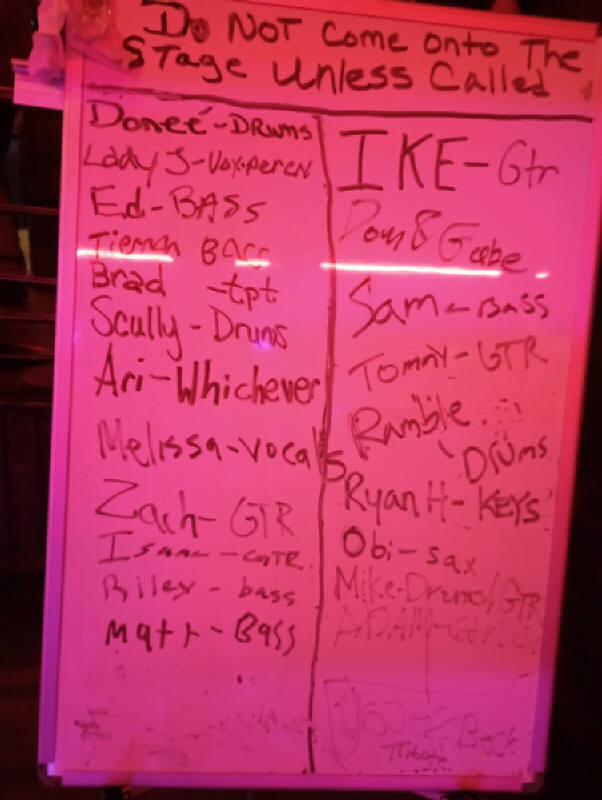 Do NOT Come Onto The
STage Unless Called
Doneé-DRums
Lady J-Vox
Ed-BASS
Tieman Bass
Brad -tpt
Scully-Drums
Ari-Whichever
Melissa-vocals
Zach-GTR
Riley-bass
Matt-Bass
IKE-Gtr
Sam-Bass
Tommy-GTR
Ramble
Drums
Ryan H-KEYS
Obi-sax
Mike-Drums/GTR
ADAM-Gtr
Beck
Tribute